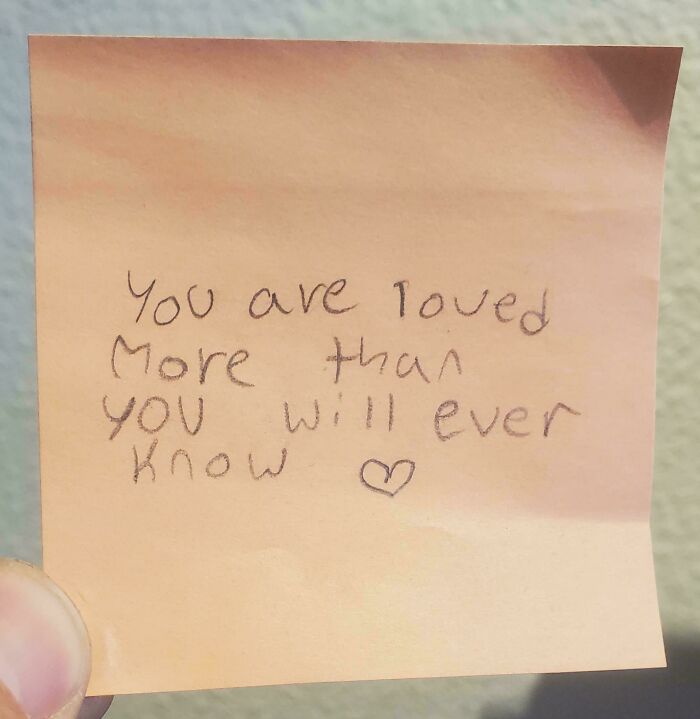 You are loved
More than
you will ever
know ♡